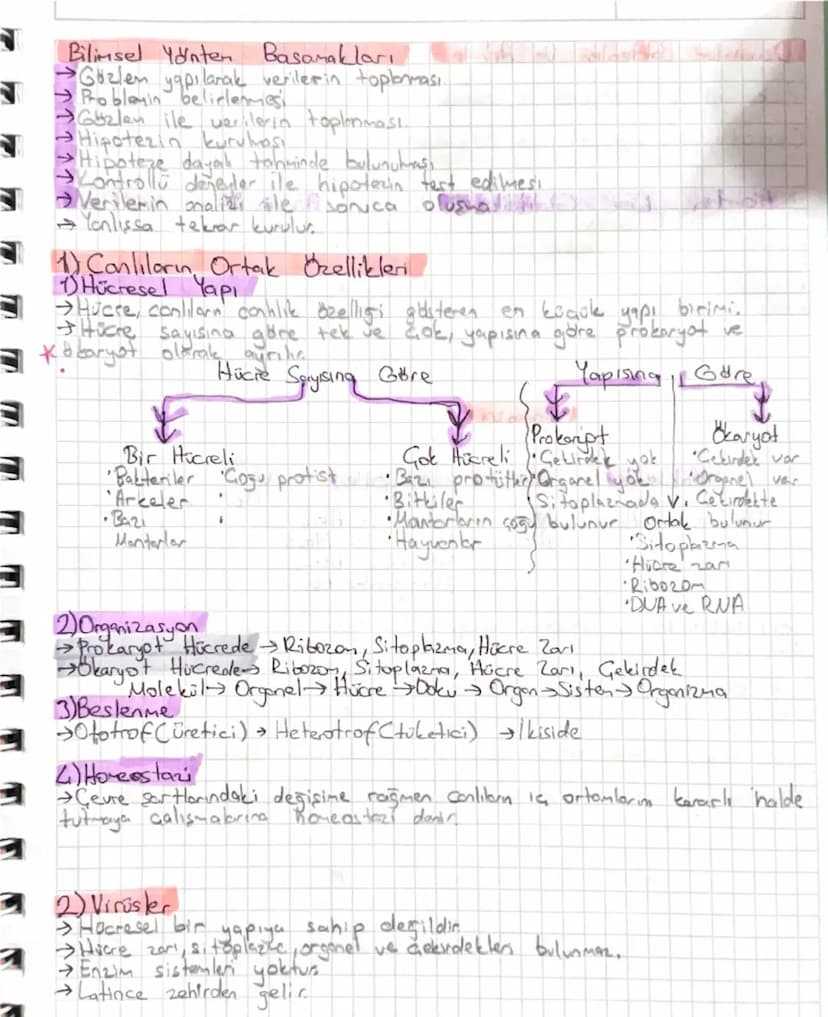 Bilimsel Yönten Basamakları
→Gözlem yapılarak verilerin toplanması
→Problemin belirlenmesi
→Gözlem ile verilerin toplanması
→Hipotezin kurulması
→Hipoteze dayalı tahminde bulunulması
→Kontrollü deneyler ile hipotezin test edilmesi
→Verilerin analizi ile sonuca
→Yanlışsa tekrar kurulur.
1) Canlıların Ortak Özellikleri
1) Hücresel Yapı
→Hücre, canlıların canlılık özelliği gösteren en küçük yapı birimi.
→Hücre sayısına göre tek ve çok, yapısına göre prokaryot ve
*ökaryot olarak ayrılır.
Hücre Sayısına Göre
Yapısına Göre
Bir Hücreli
•Bakteriler •Çoğu protist
•Arkeler •
•Bazı •
Mantarlar
Çok Hücreli
•Bazı protistler
•Bitkiler
•Mantarların çoğu
•Hayvanlar
Prokaript
•Çekirdek yok
•Organel yok
Sitoplazmada
bulunur
Ökaryot
•Çekirdek var
•Organel var
Çekirdekte
bulunur
Ortak
•Sitoplazma
•Hücre zarı
•Ribozom
•DNA ve RNA
2) Organizasyon
→Prokaryot Hücrede →Ribozom, Sitoplazma, Hücre Zarı
→Ökaryot Hücrede→ Ribozom, Sitoplazma, Hücre Zarı, Çekirdek
Molekül→ Organel→ Hücre →Doku → Organ→Sistem→ Organizma
3) Beslenme
→Ototrof (üretici) → Heterotrof (tüketici) →İkiside
4) Homeostazi
→Çevre şartlarındaki değişime rağmen canlıların iç ortamlarını kararlı halde
tutmaya çalışmalarına homeostazi denir.
2) Virüsler
→ Hücresel bir yapıya sahip değildir
→ Hücre zarı, sitoplazma, organel ve çekirdekleri bulunmaz.
→ Enzim sistemleri yoktur
→ Latince zehirden gelir.